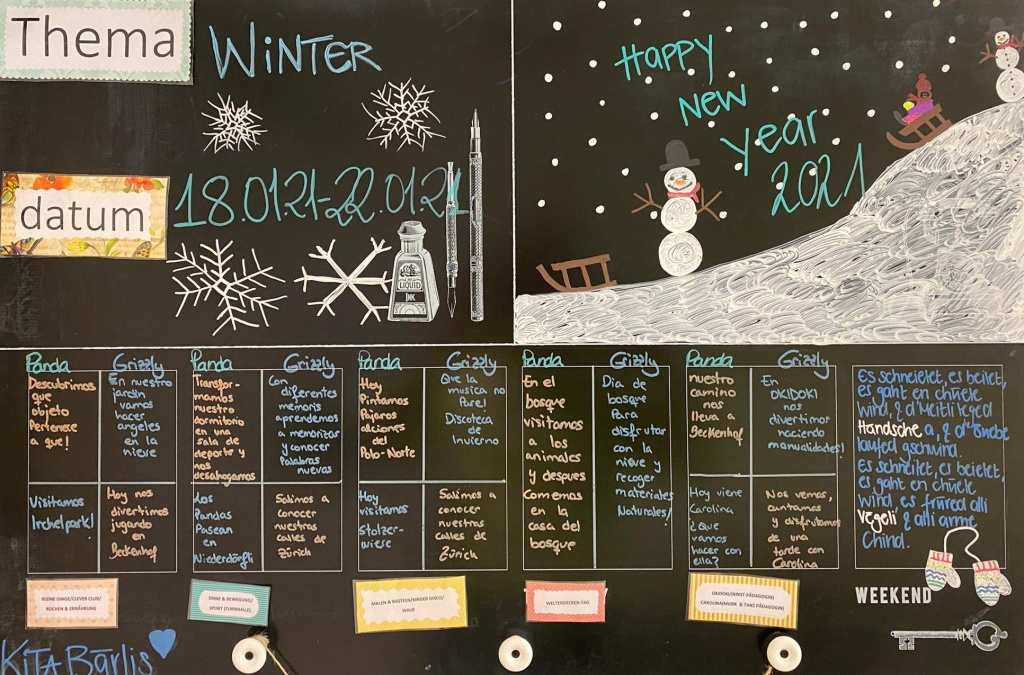 Thema
WINTER
Happy
New
year
2021
datum
18.01.21-22.01.21
LIQUID
INK
Panda
Descubrimos
que
objeto
Pertenece
a que!
Grizzly
En nuestro
jardin
vamos
hacer
angeles
en la
nieve
Visitamos
Irchelpark!
Hoy nos
divertimos
jugando
en
Beckenhof
Panda
Transfor-
mambs
nuestro
dormitorio
en una
sala de
deporte y
nos
desahogamos
Grizzly
Con
diferentes
memoris
aprendemos
a memorizar
y conocer
Palabras
nuevas
Los
Pandas
Pasean
en
Niederdörfli
Salimos a
conocer
nuestras
calles de
Zürich
Panda
Hoy
Pintamos
Pajaros
alciones
del
Polo-Norte
Grizzly
Que la
musica no
Pare!
Discoteca
de
Invierno
Hoy
visitamos
Stolzer-
wiese
Salimos a
conocer
nuestras
calles de
Zürich
Panda
En el
bosque
visitamos
a los
animales
y despues
Comemos
en la
casa del
bosque
Grizzly
Dia de
bosque
Para
disfrutar
con la
nieve y
recoger
materiales
Naturales!
Panda
nuestro
camino
nos
lleva a
Beckenhof
Grizzly
En
OKIDOKI
nos
divertimos
haciendo
manualidades!
Hoy viene
Carolina
¿que
vamos
hacer con
ella?
Nos vemos,
cantamos
y disfrutamos
de una
tarde con
Carolina
Es schneielet, es beilet,
es gaht en chüele
wind,
Handsche a,
laufed gschwind.
Es schneilet, es beielet,
es gaht en chüele
wind, es früred alli
Vegeli & alli arme
Chind.
WEEKEND
KLEINE DINGE/CLEVER CLUB/
KOCHEN & ERNÄHRUNG
SINNE & BEWEGUNG/
SPORT (TURNHALLE)
MALEN & BASTELN/KINDER DISCO/
WALD
WELTENTDECKER TAG
OKIDOKI(KUNST-PÄDAGOGIN)
CAROLINA(MUSIK & TANZ PÄDAGOGIN)
KITA Bärlis